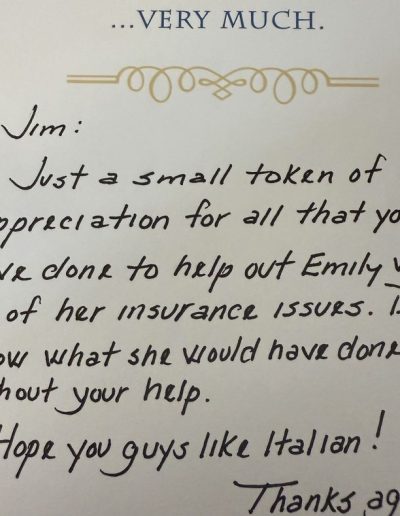 ...VERY MUCH.
Jim:
Just a small token of
ppreciation for all that yo
ve done to help out Emily
of her insurance issues. I
ow what she would have done
hout your help.
Hope you guys like Italian!
Thanks ag